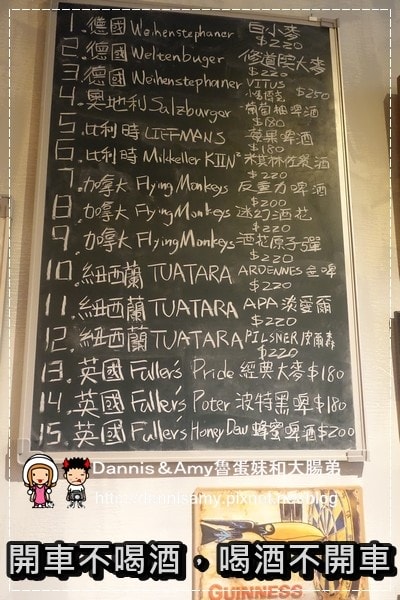 1. 德國 Weihenstephaner 白小麥 $220
2. 德國 Weltenbuger 修道院大麥 $220
3. 德國 Weihenstephaner VITUS $250
4. 奧地利 Salzburger 葡萄柚啤酒 $180
5. 比利時 LIEFMANS 蘋果啤酒 $180
6. 比利時 Mikkeller 米其林佐餐酒 $220
7. 加拿大 Flying Monkeys 反重力啤酒 $200
8. 加拿大 Flying Monkeys 迷幻酒花 $220
9. 加拿大 Flying Monkeys 酒花原子彈 $220
10. 紐西蘭 TUATARA ARDENNES 金啤 $220
11. 紐西蘭 TUATARA APA 淡愛爾 $220
12. 紐西蘭 TUATARA PILSNER 皮爾森 $220
13. 英國 Fuller's Pride 經典大麥 $180
14. 英國 Fuller's Poter 波特黑啤 $180
15. 英國 Fullers Honey Dew 蜂蜜啤酒 $200
Dannis & Amy魯蛋妹和大腸弟
http://dennisamy.pixnet.net/blog
開車不喝酒，喝酒不開車
GUINNESS